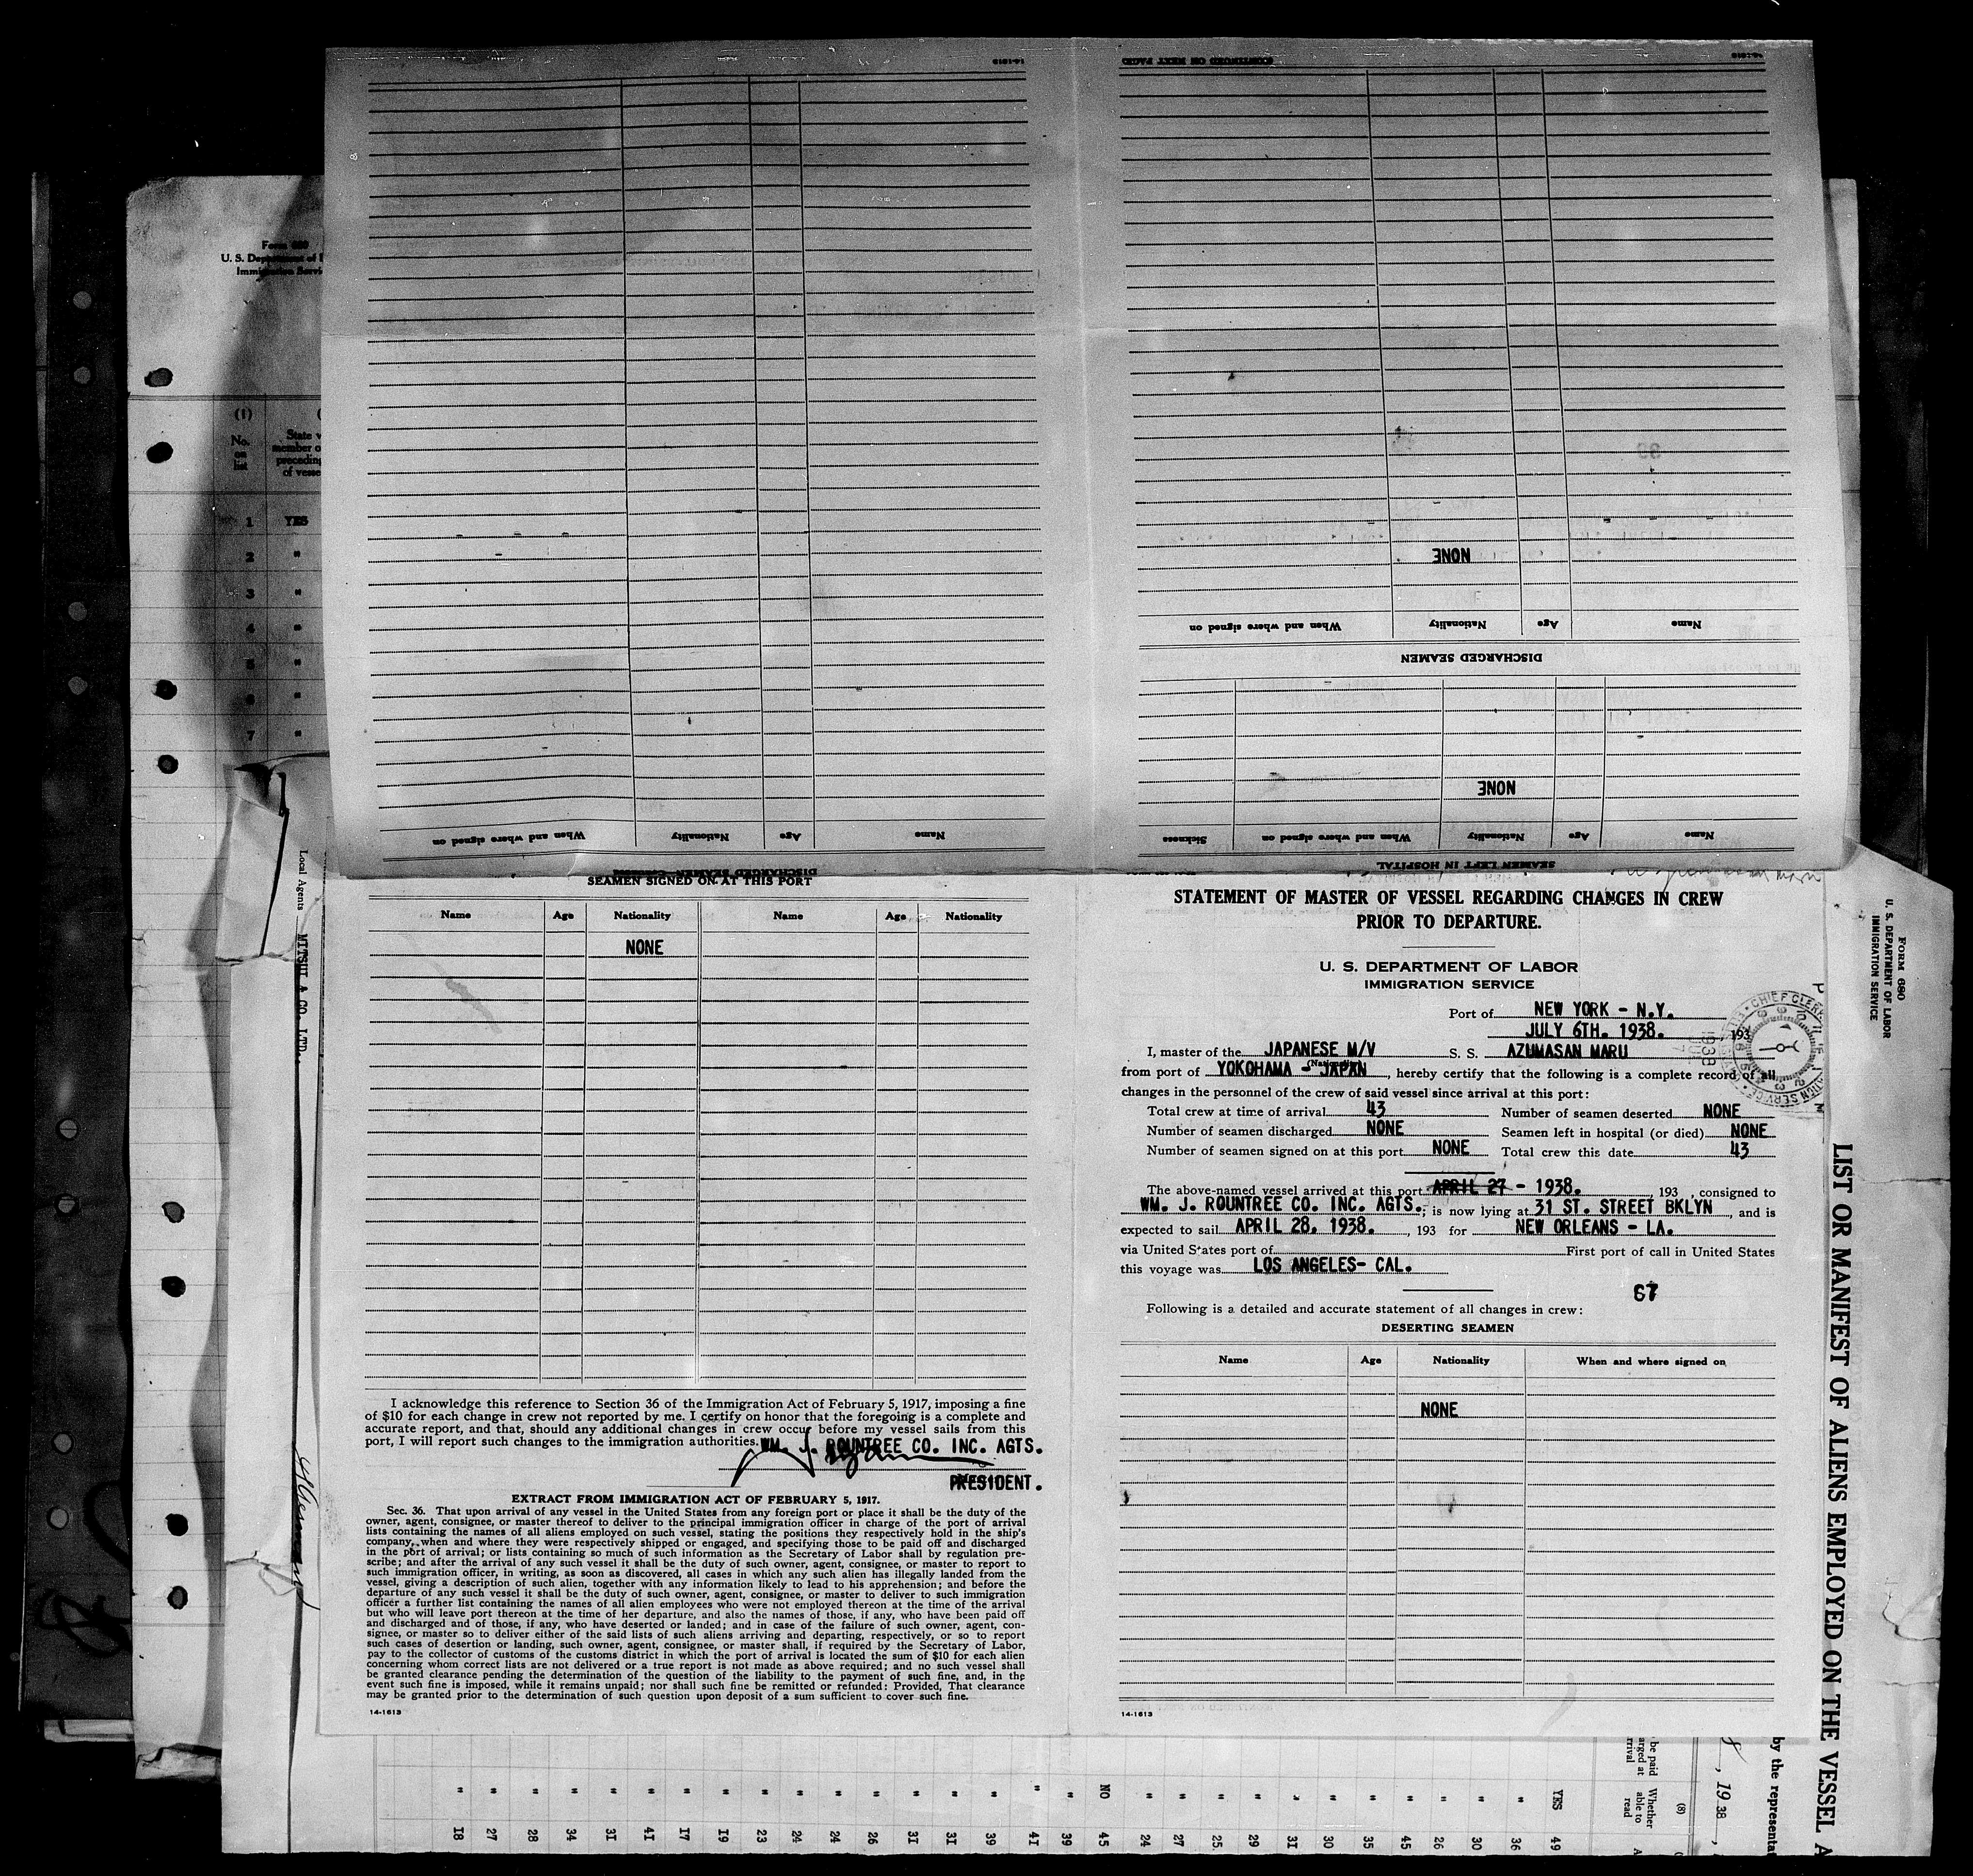 Form 680
U. S. Department of
Immigration Servi
(1)
No.
on
list
State
member o
preceding
of vesse
1 YES
2 "
3 "
4 "
5 "
6 "
7 "
14-1613
(CONTINUED ON NEXT PAGE)
14-1613
NONE
Name Age Nationality When and where signed on
DISCHARGED SEAMEN
NONE
Name Age Nationality When and where signed on Sickness
SEAMEN LEFT IN HOSPITAL
Name Age Nationality When and where signed on
DISCHARGED SEAMEN
SEAMEN SIGNED ON AT THIS PORT
Name Age Nationality Name Age Nationality
NONE
I acknowledge this reference to Section 36 of the Immigration Act of February 5, 1917, imposing a fine
of $10 for each change in crew not reported by me. I certify on honor that the foregoing is a complete and
accurate report, and that, should any additional changes in crew occur before my vessel sails from this
port, I will report such changes to the immigration authorities. WM. J. ROUNTREE CO. INC. AGTS.
PRESIDENT.
EXTRACT FROM IMMIGRATION ACT OF FEBRUARY 5, 1917.
Sec. 36. That upon arrival of any vessel in the United States from any foreign port or place it shall be the duty of the
owner, agent, consignee, or master thereof to deliver to the principal immigration officer in charge of the port of arrival
lists containing the names of all aliens employed on such vessel, stating the positions they respectively hold in the ship's
company, when and where they were respectively shipped or engaged, and specifying those to be paid off and discharged
in the port of arrival; or lists containing so much of such information as the Secretary of Labor shall by regulation pre-
scribe; and after the arrival of any such vessel it shall be the duty of such owner, agent, consignee, or master to report to
such immigration officer, in writing, as soon as discovered, all cases in which any such alien has illegally landed from the
vessel, giving a description of such alien, together with any information likely to lead to his apprehension; and before the
departure of any such vessel it shall be the duty of such owner, agent, consignee, or master to deliver to such immigration
officer a further list containing the names of all alien employees who were not employed thereon at the time of the arrival
but who will leave port thereon at the time of her departure, and also the names of those, if any, who have been paid off
and discharged and of those, if any, who have deserted or landed; and in case of the failure of such owner, agent, con-
signee, or master so to deliver either of the said lists of such aliens arriving and departing, respectively, or so to report
such cases of desertion or landing, such owner, agent, consignee, or master shall, if required by the Secretary of Labor,
pay to the collector of customs of the customs district in which the port of arrival is located the sum of $10 for each alien
concerning whom correct lists are not delivered or a true report is not made as above required; and no such vessel shall
be granted clearance pending the determination of the question of the liability to the payment of such fine, and, in the
event such fine is imposed, while it remains unpaid; nor shall such fine be remitted or refunded: Provided, That clearance
may be granted prior to the determination of such question upon deposit of a sum sufficient to cover such fine.
14-1613
STATEMENT OF MASTER OF VESSEL REGARDING CHANGES IN CREW
PRIOR TO DEPARTURE.
U. S. DEPARTMENT OF LABOR
IMMIGRATION SERVICE
Port of NEW YORK - N.Y.
JULY 6TH. 1938. 193
I, master of the JAPANESE M/V S. S. AZUMASAN MARU
(Nationality)
from port of YOKOHAMA - JAPAN, hereby certify that the following is a complete record of all
changes in the personnel of the crew of said vessel since arrival at this port:
Total crew at time of arrival 43 Number of seamen deserted NONE
Number of seamen discharged NONE Seamen left in hospital (or died) NONE
Number of seamen signed on at this port NONE Total crew this date 43
The above-named vessel arrived at this port APRIL 27 - 1938. , 193 , consigned to
WM. J. ROUNTREE CO. INC. AGTS.; is now lying at 31 ST. STREET BKLYN, and is
expected to sail APRIL 28. 1938. , 193 for NEW ORLEANS - LA.
via United States port of First port of call in United States
this voyage was LOS ANGELES- CAL.
67
Following is a detailed and accurate statement of all changes in crew:
DESERTING SEAMEN
Name Age Nationality When and where signed on
NONE
14-1613
CHIEF CLERK
1938
Local Agents MITSUI & CO. LTD.
FORM 680
U. S. DEPARTMENT OF LABOR
IMMIGRATION SERVICE
LIST OR MANIFEST OF ALIENS EMPLOYED ON THE VESSEL A
by the representat
8, 1938,
(8)
Whether
able to
read
be paid
arged at
rrival
YES " " " " " " " " " " " NO " " " " " " " " " " " " " "
49 36 30 26 45 35 30 31 29 25 27 24 45 39 41 39 31 31 26 24 24 23 19 17 41 31 34 28 27 18